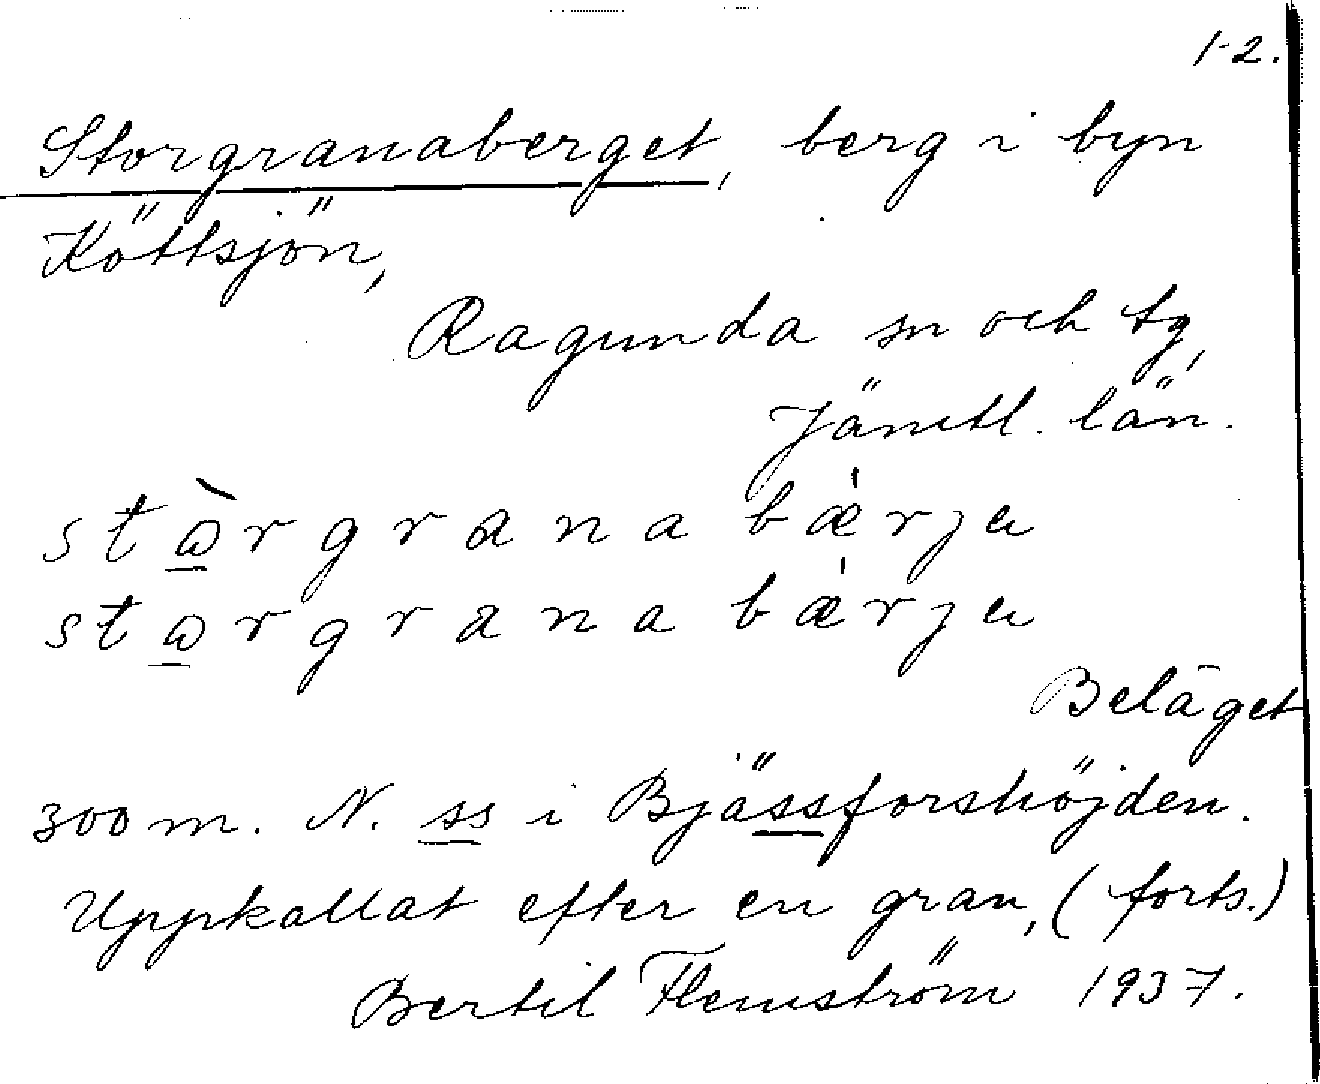 1-2.
Storgranaberget, berg i byn
Köttsjön,
Ragunda sn och tg,
Jämtl. län.
stɷ̀rgranabǽrjə
stɷrgranabǽrjə
Beläget
300 m. N. ss i Bjässforshöjden.
Uppkallat efter en gran, (forts.)
Bertil Flemström 1937.